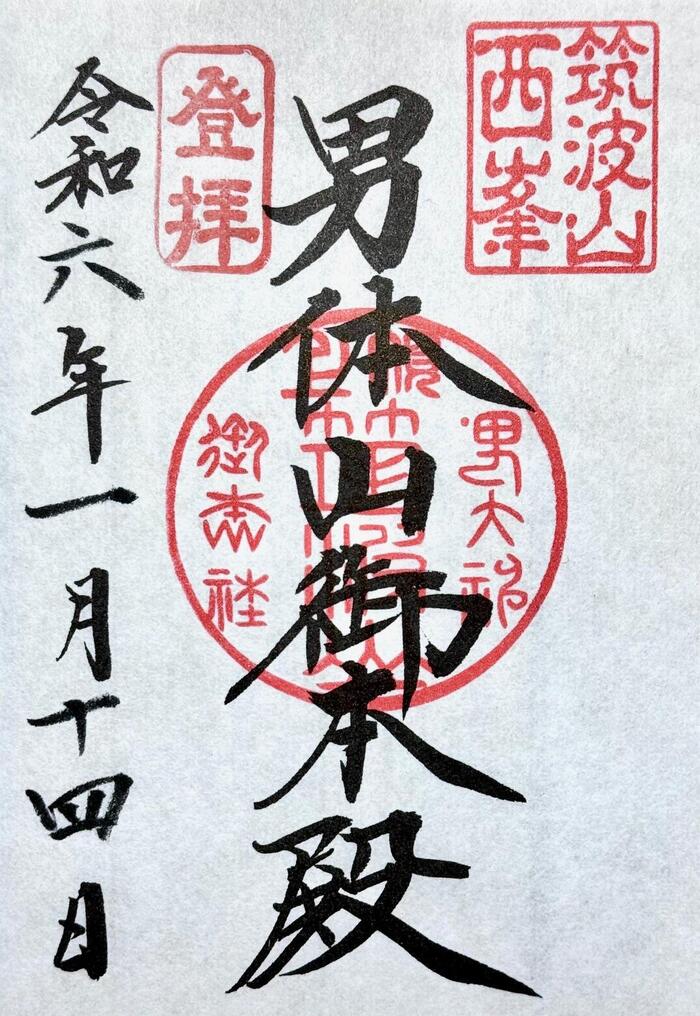 筑波山
西峯
男体山御本殿
登拝
男大神
御本社
令和六年一月十四日